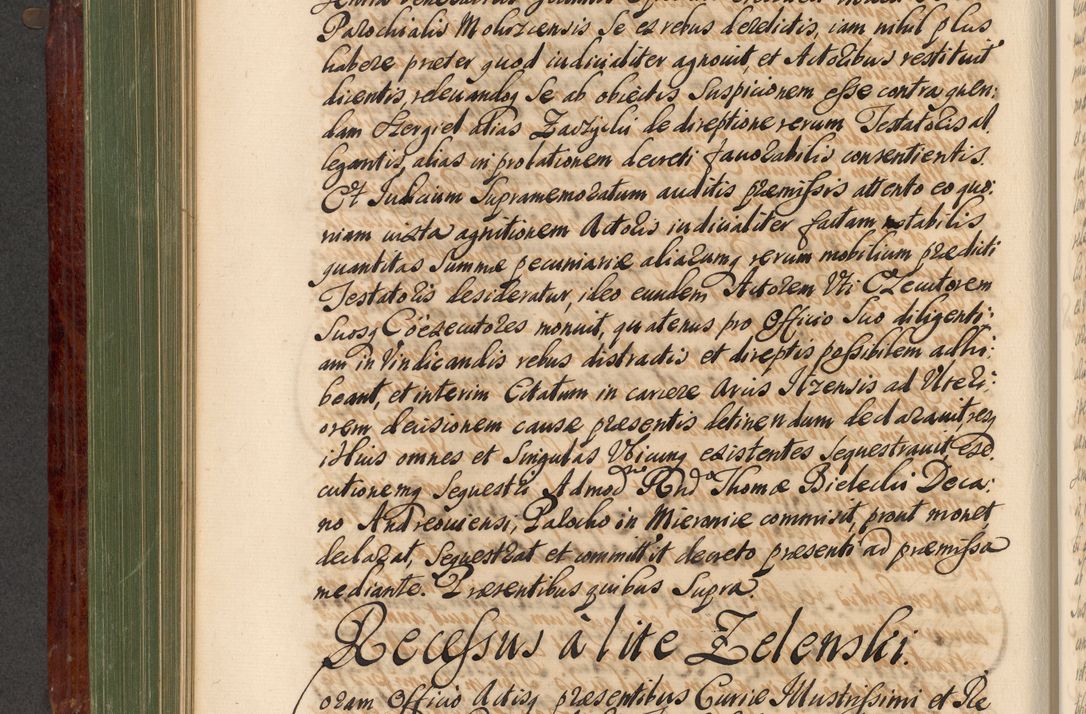 Parochialis Moloziensis se ex rebus derelictis, iam nihil plus
habere præter quod iudicialiter agnouit, et Actoribus restituit
dicentis, releuandoq se ab obiectis Suspicionem esse contra quen:
dam Gregiel alias Zaczyclii de direptione rerum Testatoris al
legantis, alias in probationem decreti fauorabilis consentientis.
Et Iudicium Supramemoratum auditis præmissis attento eo quo:
niam iuxta agnitionem Actoris iudicialiter factam notabilis
quantitas Summæ pecuniariæ aliarumq rerum mobilium prædicti
Testatoris desideratur, ideo eundem Actorem Uti Executorem
Suosq Coëxecutores monuit, quatenus pro Officio Suo diligenti:
am in Vindicandis rebus distractis et direptis possibilem adhi:
beant, et interim Citatum in carcere Arcis Ilzensis ad Uteri:
orem decisionem causæ præsentis detinendum declarauit, resq
illius omnes et Singulas Ubicunq existentes Sequestrauit Exe
cutionemq Sequestri Admod Rndo Thomæ Bielecki Deca:
no Andreouiensi, Parocho in Mieronice commisit, prout monet
declarat, Sequestrat et committit decreto præsenti ad præmissa
mediante. Præsentibus quibus Supra.
Recessus à lite Zelenski.
oram Officio Actisq præsentibus Curiæ Illustrissimi et Re